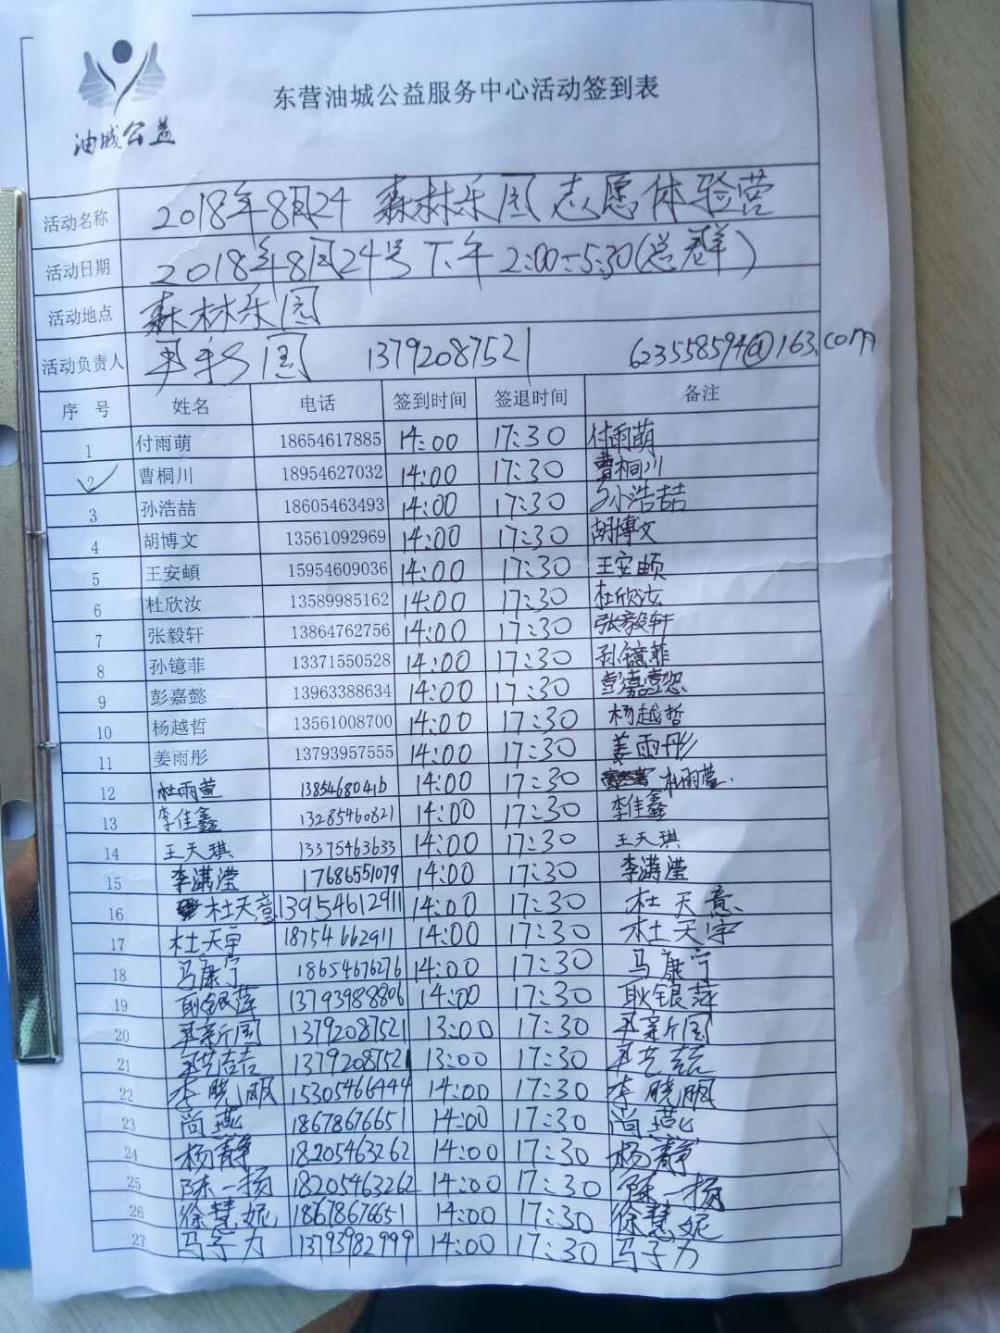 油城公益
东营油城公益服务中心活动签到表
活动名称 2018年8月24 森林乐园志愿体验营
活动日期 2018年8月24号下午2:00-5:30(总群)
活动地点 森林乐园
活动负责人 13792087521 623558594@163.com
序号 姓名 电话 签到时间 签退时间 备注
1 付雨萌 18654617885 14:00 17:30 付雨萌
2 曹桐川 18954627032 14:00 17:30 曹桐川
3 孙浩喆 18605463493 14:00 17:30 孙浩喆
4 胡博文 13561092969 14:00 17:30 胡博文
5 王安頔 15954609036 14:00 17:30 王安頔
6 杜欣汝 13589985162 14:00 17:30 杜欣汝
7 张毅轩 13864762756 14:00 17:30 张毅轩
8 孙镱菲 13371550528 14:00 17:30 孙镱菲
9 彭嘉懿 13963388634 14:00 17:30 彭嘉懿
10 杨越哲 13561008700 14:00 17:30 杨越哲
11 姜雨彤 13793957555 14:00 17:30 姜雨彤
12 杜雨萱 13854680416 14:00 17:30 杜雨萱.
13 李佳鑫 13285460821 14:00 17:30 李佳鑫
14 王天琪 13375463633 14:00 17:30 王天琪
15 李潇滢 17686551079 14:00 17:30 李潇滢
16 杜天意 13954612911 14:00 17:30 杜天意
17 杜天宇 18754662911 14:00 17:30 杜天宇
18 马康宁 18654676276 14:00 17:30 马康宁
19 耿银萍 13793988806 14:00 17:30 耿银萍
20 13792087521 13:00 17:30
21 13792087521 13:00 17:30
22 李晓飒 15305466444 14:00 17:30 李晓飒
23 尚燕 18678676651 14:00 17:30 尚燕
24 杨静 18205463262 14:00 17:30 杨静
25 陈一扬 18205463262 14:00 17:30 陈一扬
26 徐慧妮 18678676651 14:00 17:30 徐慧妮
27 马子力 13793982999 14:00 17:30 马子力